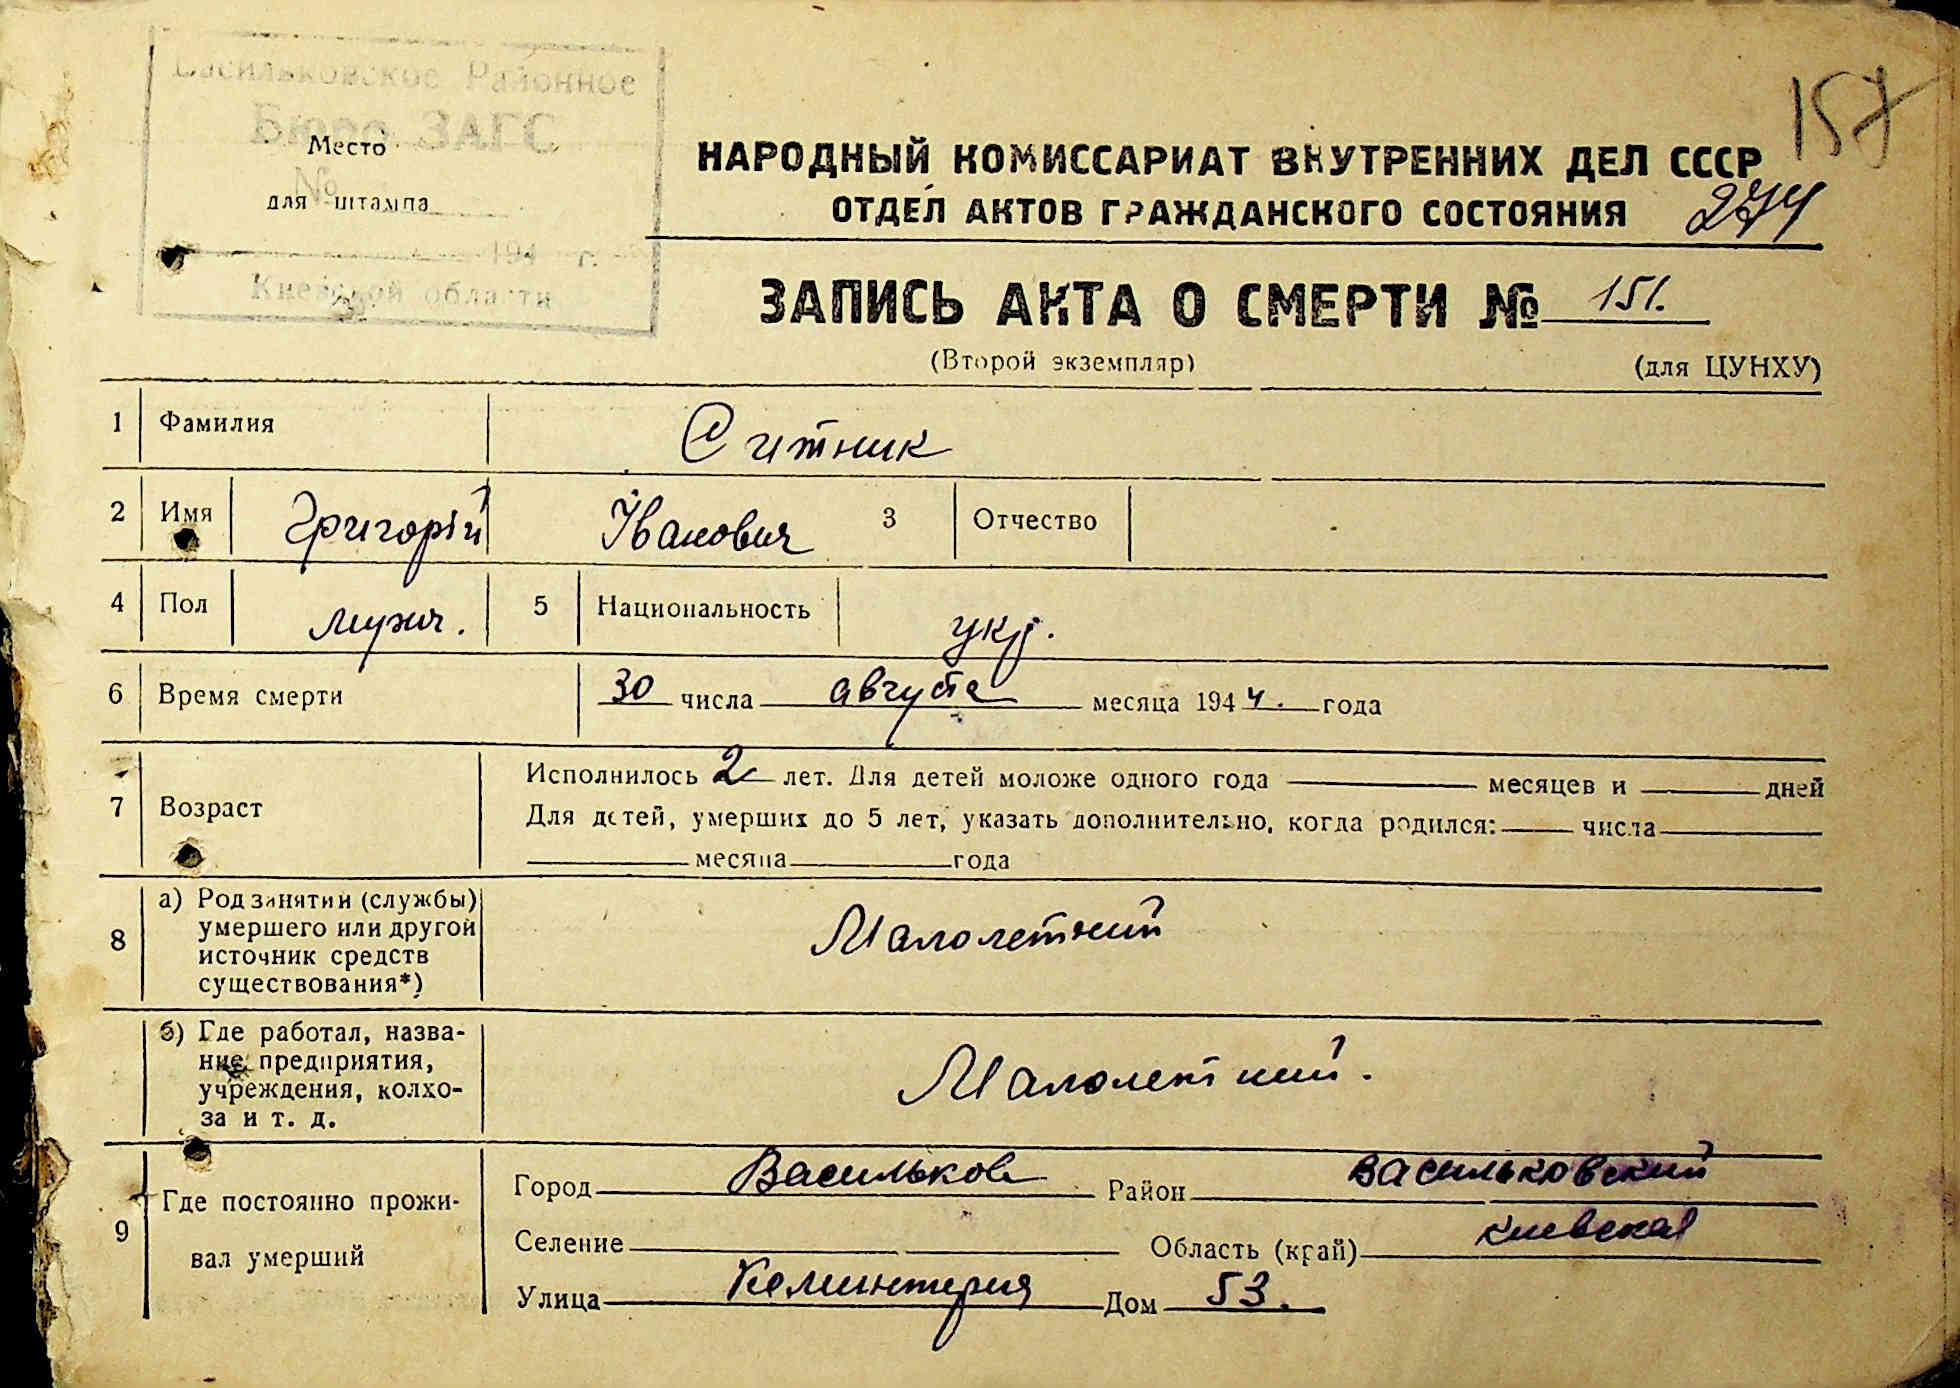 Васильковское Районное
Бюро ЗАГС
Место
№
для штампа
194 г.
Киевской области
157
НАРОДНЫЙ КОМИССАРИАТ ВНУТРЕННИХ ДЕЛ СССР
ОТДЕЛ АКТОВ ГРАЖДАНСКОГО СОСТОЯНИЯ 274
ЗАПИСЬ АКТА О СМЕРТИ № 151.
(Второй экземпляр) (для ЦУНХУ)
1 Фамилия Ситник
2 Имя Григорій Іванович 3 Отчество
4 Пол мужч. 5 Национальность укр.
6 Время смерти 30 числа августа месяца 1944. года
7 Возраст Исполнилось 2 лет. Для детей моложе одного года месяцев и дней
Для детей, умерших до 5 лет, указать дополнительно, когда родился: числа
месяца года
8 а) Род занятий (службы)
умершего или другой
источник средств
существования*)
Малолетний
б) Где работал, назва-
ние предприятия,
учреждения, колхо-
за и т. д.
Малолетний.
9 Где постоянно прожи-
вал умерший
Город Васильков Район Васильковский
Селение Область (край) Киевская
Улица Коминтерна Дом 53.